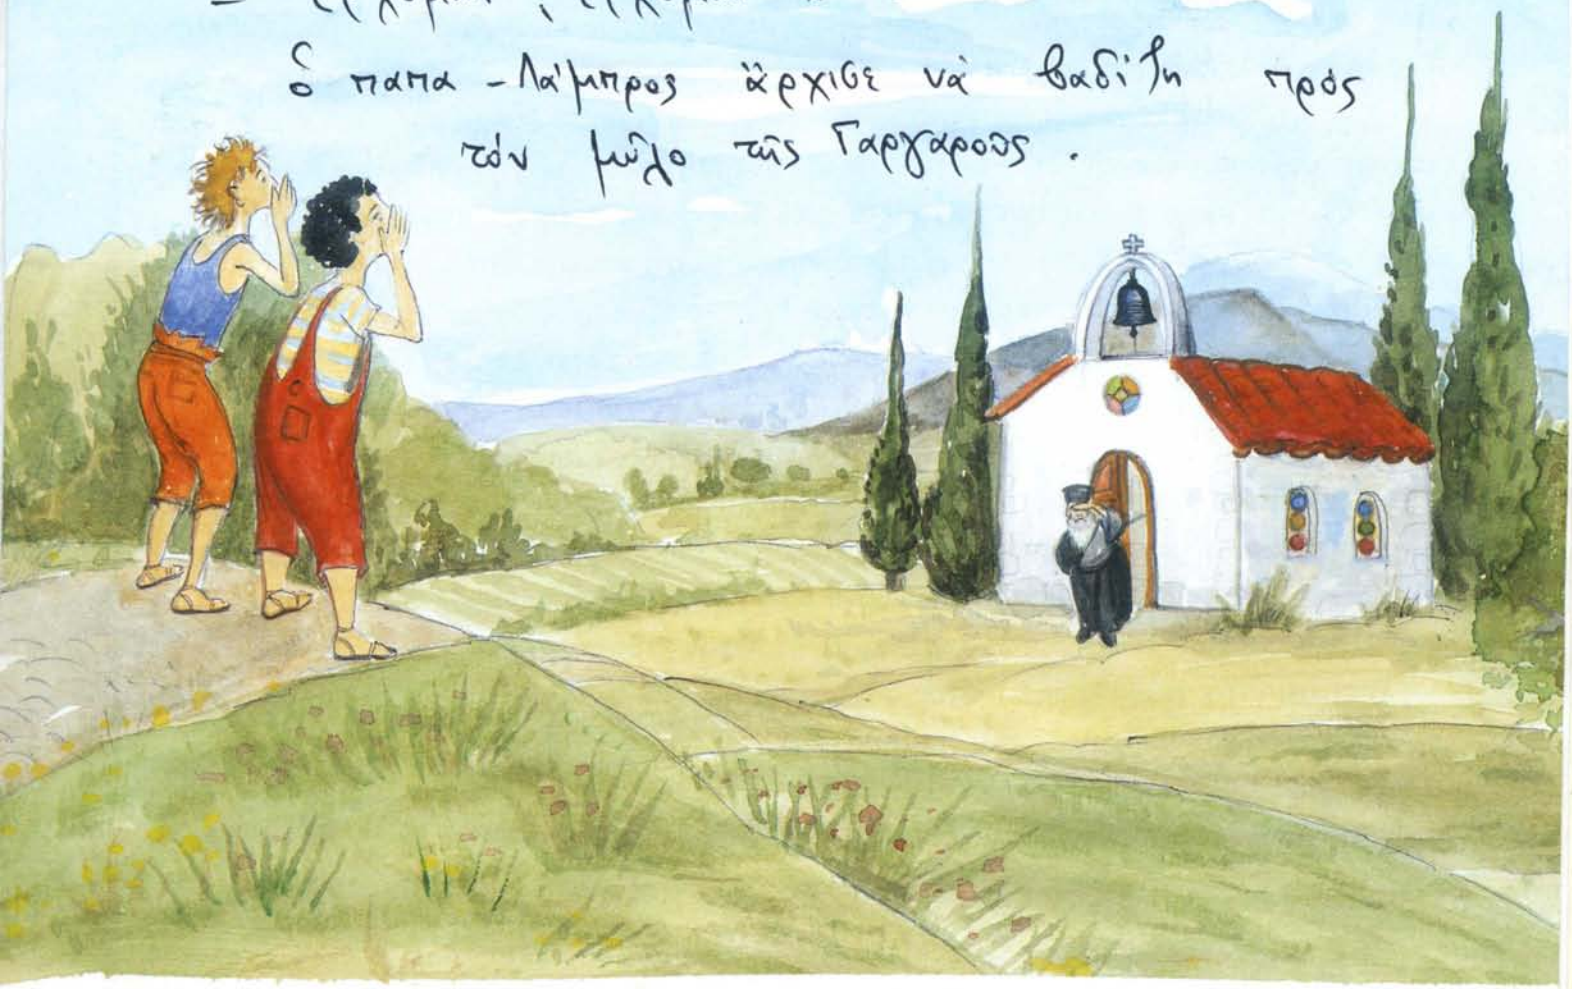 ὁ παπα-Λάμπρος ἄρχισε νὰ βαδίζῃ πρὸς
τὸν μῦλο τῆς Γαργαροῦς.